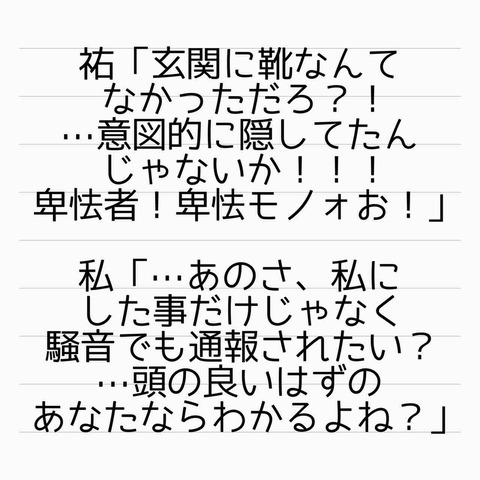 祐「玄関に靴なんて
なかっただろ？！
…意図的に隠してたん
じゃないか！！！
卑怯者！卑怯モノォお！」
私「…あのさ、私に
した事だけじゃなく
騒音でも通報されたい？
…頭の良いはずの
あなたならわかるよね？」